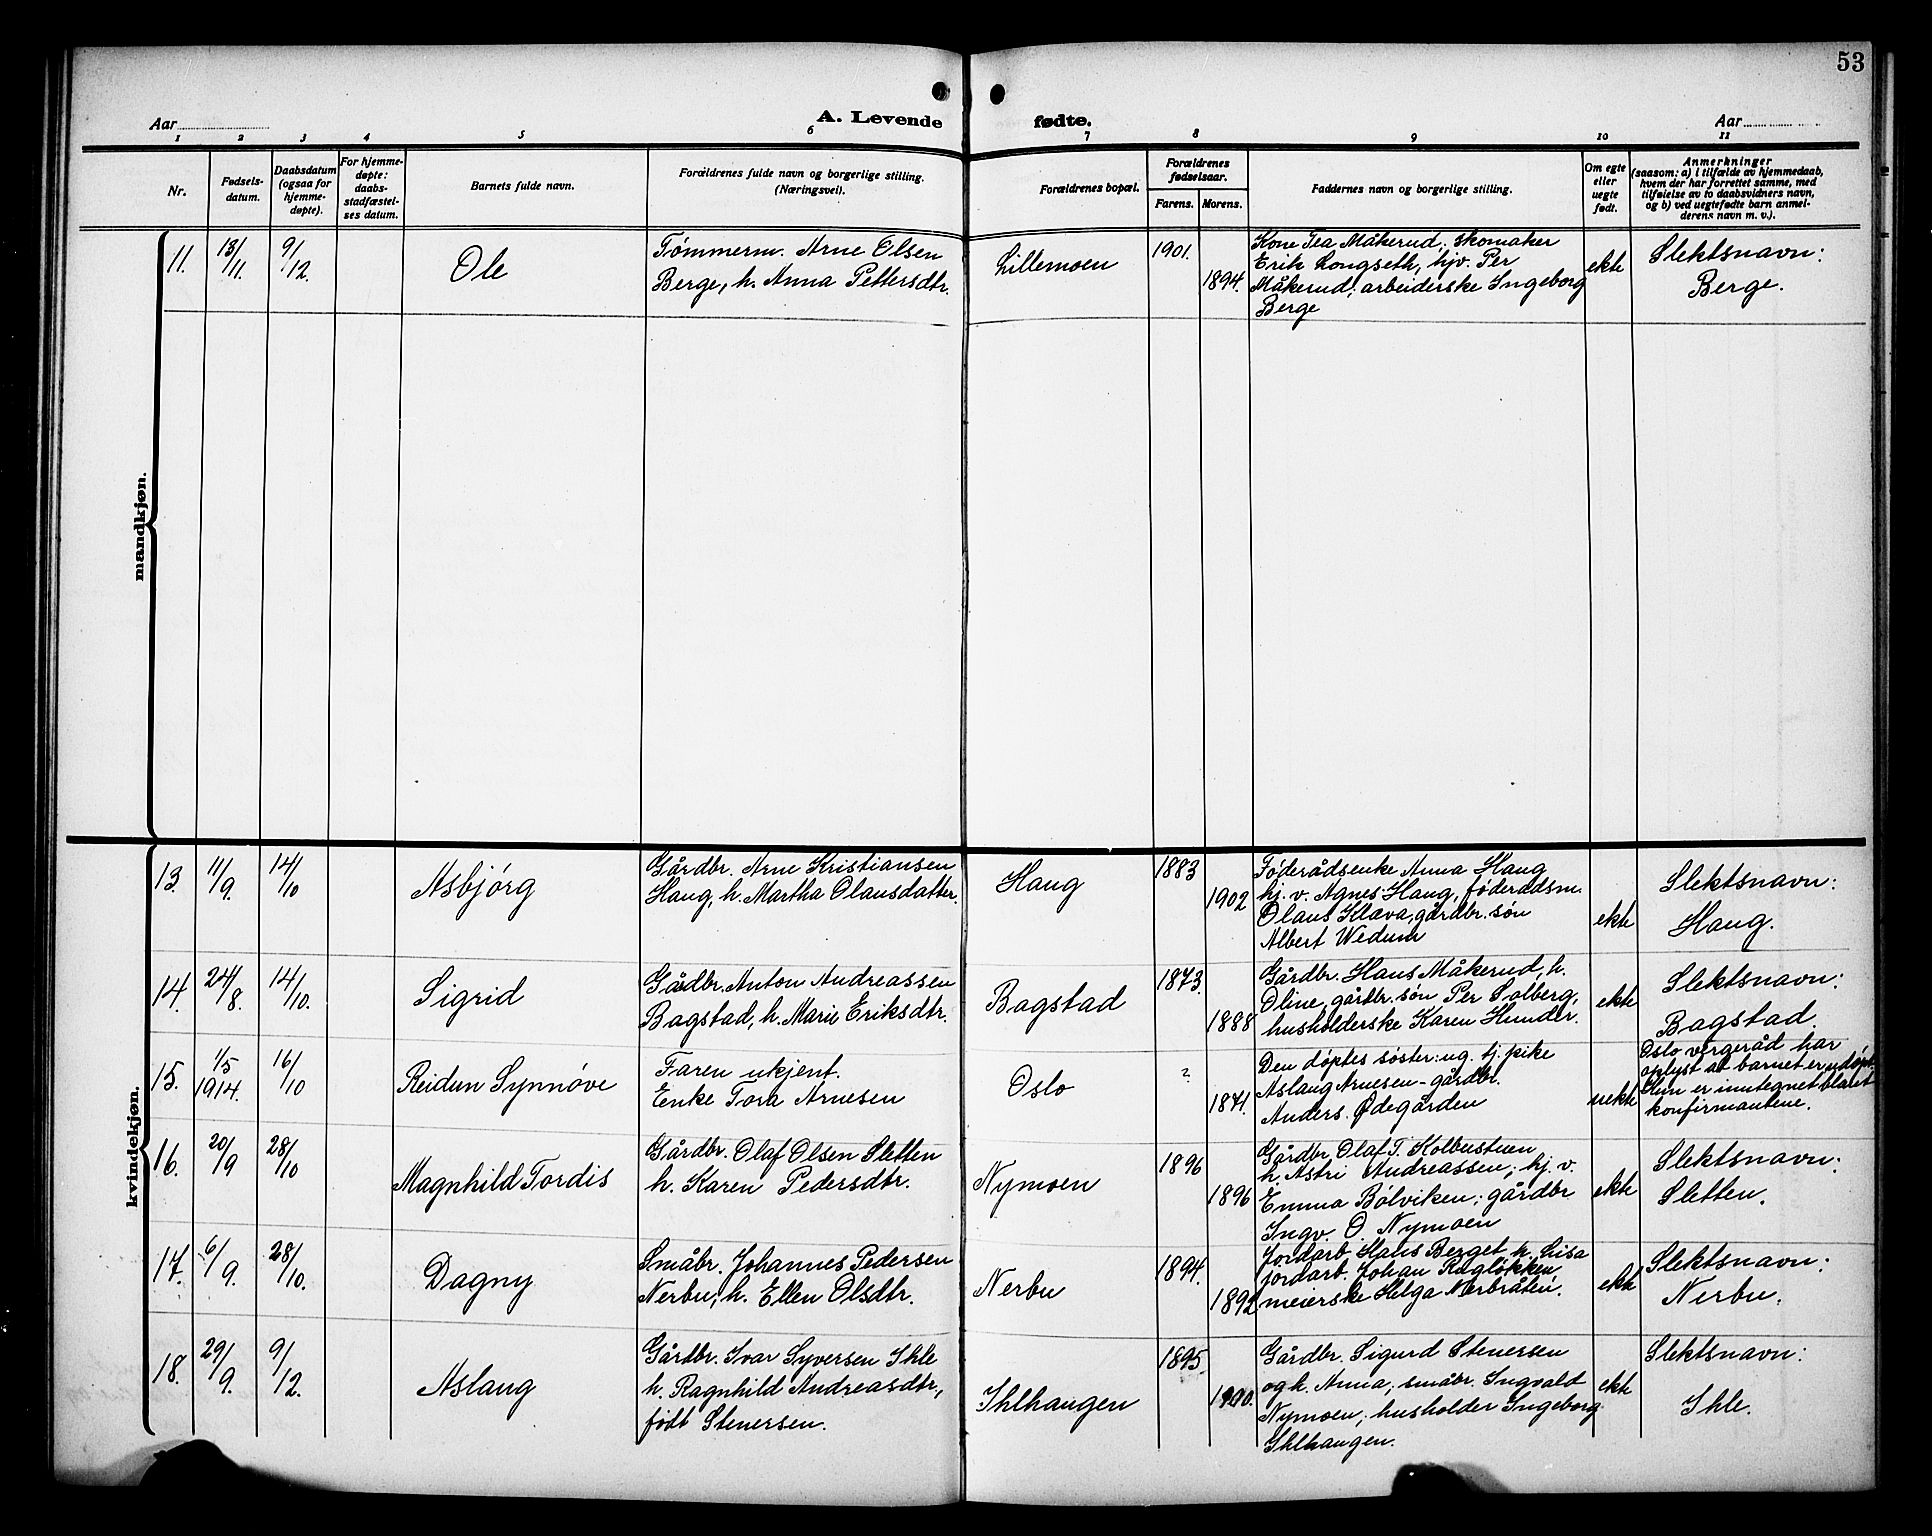 53
Aar
A. Levende
fødte.
Aar
1 2 3 4 5 6 7 8 9 10 11
Nr.
Fødsels-
datum.
Daabsdatum
(ogsaa for
hjemme-
døpte).
For hjemme-
døpte:
daabs-
stadfæstel-
ses datum.
Barnets fulde navn.
Forældrenes fulde navn og borgerlige stilling.
(Næringsvei).
Forældrenes bopæl.
Forældrenes
fødselsaar.
Farens. Morens.
Faddernes navn og borgerlige stilling.
Om egte
eller
uegte
født.
Anmerkninger
(saasom: a) i tilfælde av hjemmedaab,
hvem der har forrettet samme, med
tilføielse av to daabsvidners navn,
og b) ved uegtefødte barn anmel-
derens navn m. v.).
mandkjøn.
11.
13/11.
9/12.
Ole
Tømmerm. Arne Olsen
Berge, h. Anna Pettersdtr.
Lillemoen
1901.
1894.
Kone Tea Måkerud, skomaker
Erik Longseth, hjv. Per
Måkerud; arbeiderske Ingeborg
Berge
ekte
Slektsnavn:
Berge.
kvindekjøn.
13.
11/9.
14/10
Asbjørg
Gårdbr. Arne Kristiansen
Haug, h. Martha Olausdatter.
Haug
1883
1902
Føderådsenke Anna Haug
hj. v. Agnes Haug, føderådsm.
Olaus Klæva, gårdbr. søn
Albert Wedum
ekte
Slektsnavn:
Haug.
14.
24/8.
14/10.
Sigrid
Gårdbr. Anton Andreassen
Bagstad, h. Marie Eriksdtr.
Bagstad
1873.
1888
Gårdbr. Hans Måkerud, h.
Oline, gårdbr. søn Per Solberg,
husholderske Karen Hunder.
ekte
Slektsnavn:
Bagstad.
15.
1/5
1914.
16/10
Reidun Synnøve
Faren ukjent.
Enke Tora Arnesen
Oslo
?
1871.
Den døptes søster: ug. tj. pike
Aslaug Arnesen - gårdbr.
Anders Ødegården
uekte
Oslo vergeråd har
oplyst at barnet er udøpt.
Hun er inntegnet blant
konfirmantene.
16.
20/9
28/10
Magnhild Tordis
Gårdbr. Olaf Olsen Sletten
h. Karen Pedersdtr.
Nymoen
1896
1896
Gårdbr Olaf T. Kolbustuen
h. Astri Andreassen; hj. v.
Emma Bølviken; gårdbr
Ingv. O. Nymoen
ekte
Slektsnavn:
Sletten.
17.
6/9.
28/10.
Dagny
Småbr. Johannes Pedersen
Nerbu, h. Ellen Olsdtr.
Nerbu
1894.
1892
Jordarb. Hans Berget h. Lisa
jordarb. Johan Rugløkken
meierske Helga Nerbråten.
ekte
Slektsnavn:
Nerbu.
18.
29/9.
9/12.
Aslaug
Gårdbr. Ivar Syversen Ihle
h. Ragnhild Andreasdtr,
født Stenersen.
Ihlhaugen
1895
1900.
Gårdbr. Sigurd Stenersen
og h. Anna, småbr. Ingvald
Nymoen, husholder Ingeborg
Ihlhaugen.
ekte
Slektsnavn:
Ihle.